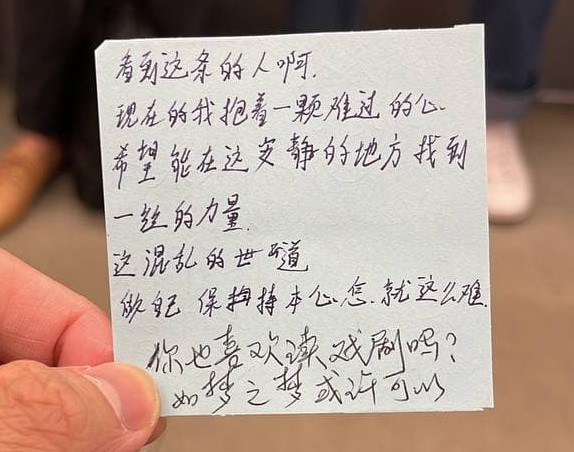 看到这条的人啊.
现在的我抱着一颗难过的心.
希望能在这安静的地方找到
一丝的力量.
这混乱的世道
做自己 保持本心.怎.就这么难.
你也喜欢读戏剧吗?
如梦之梦或许可以